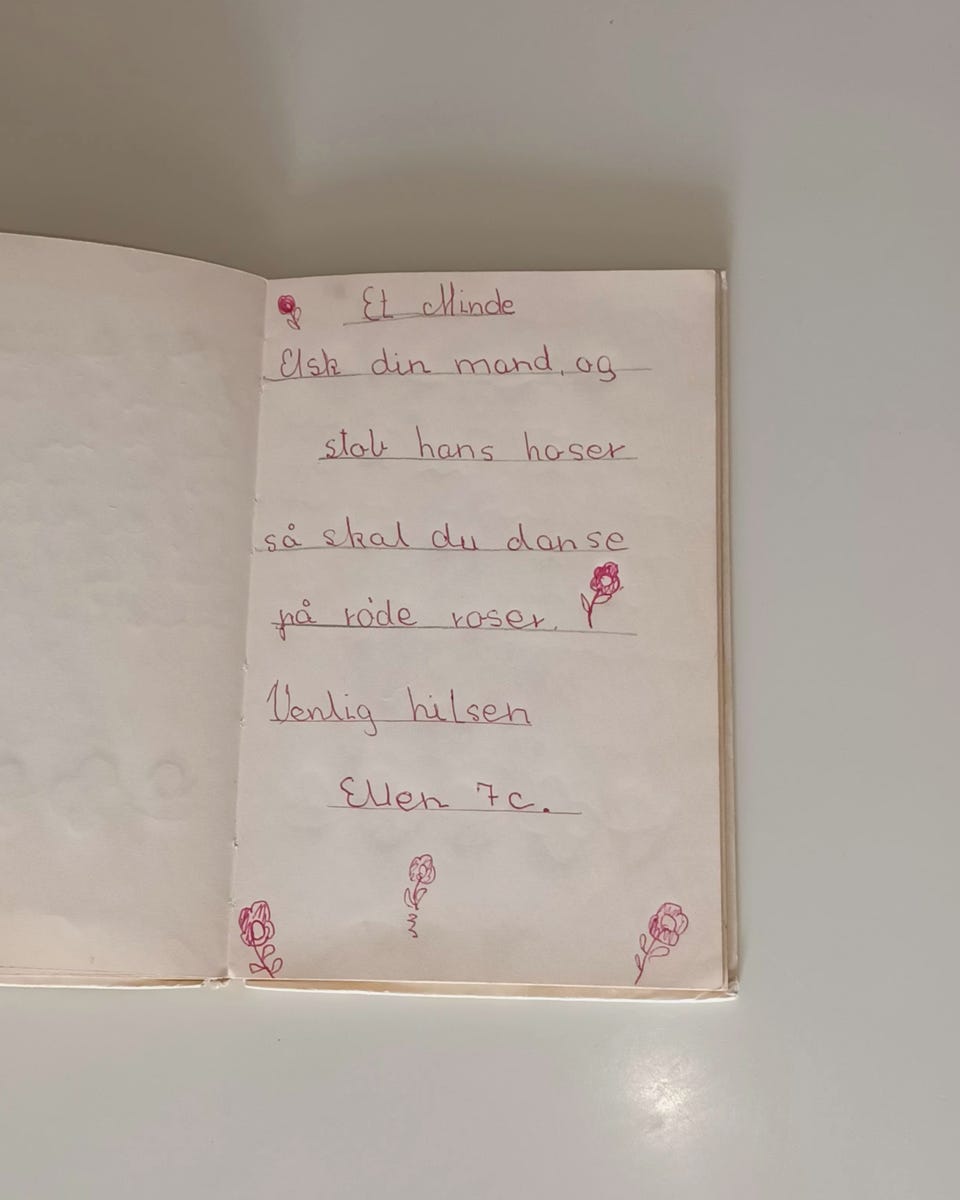 Et Minde
Elsk din mand, og
stob hans hoser
så skal du danse
på røde roser.
Venlig hilsen
Ellen 7c.